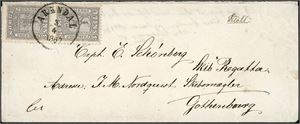 ARENDAL
Capt. E. Schönberg
Skib Regatta
Adresse J. M. Nordquist, Skibsmægler
Gothenburg